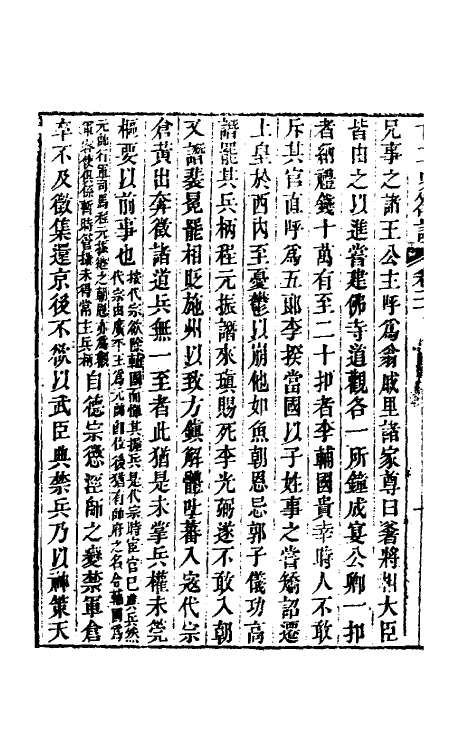 兄事之諸王公主呼爲翁戚里諸家尊曰爹將相大臣
皆由之以進嘗建佛寺道觀各一所鐘成宴公卿一扣
者納禮錢十萬有至二十扣者李輔國貴幸時人不敢
斥其官直呼爲五郎李揆當國以子姓事之嘗矯詔遷
上皇於西內至憂鬱以崩他如魚朝恩忌郭子儀功高
譖罷其兵柄程元振譖來瑱賜死李光弼遂不敢入朝
又譖裴冕罷相貶施州以致方鎮解體吐蕃入寇代宗
倉黃出奔徵諸道兵無一至者此猶是未掌兵權未筦
樞要以前事也
按代宗欲除輔國而憚其握兵是代宗時宦官已掌兵然
代宗由廣平王爲元帥自位後猶有帥府之名令輔國爲
元帥行軍司馬程元振繼之朝恩亦爲觀
軍容使俱係暫時管攝未得常主兵柄
自德宗懲涇師之變禁軍倉
卒不及徵集還京後不欲以武臣典禁兵乃以神策天